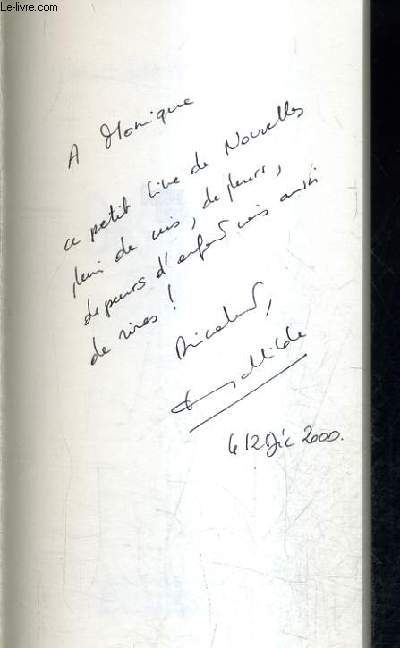 Le-livre.com
A Monique
ce petit livre de Nouvelles
plein de cris, de pleurs,
de peurs d'enfant mais aussi
de rires !
Amicalement,
12 Déc 2000.